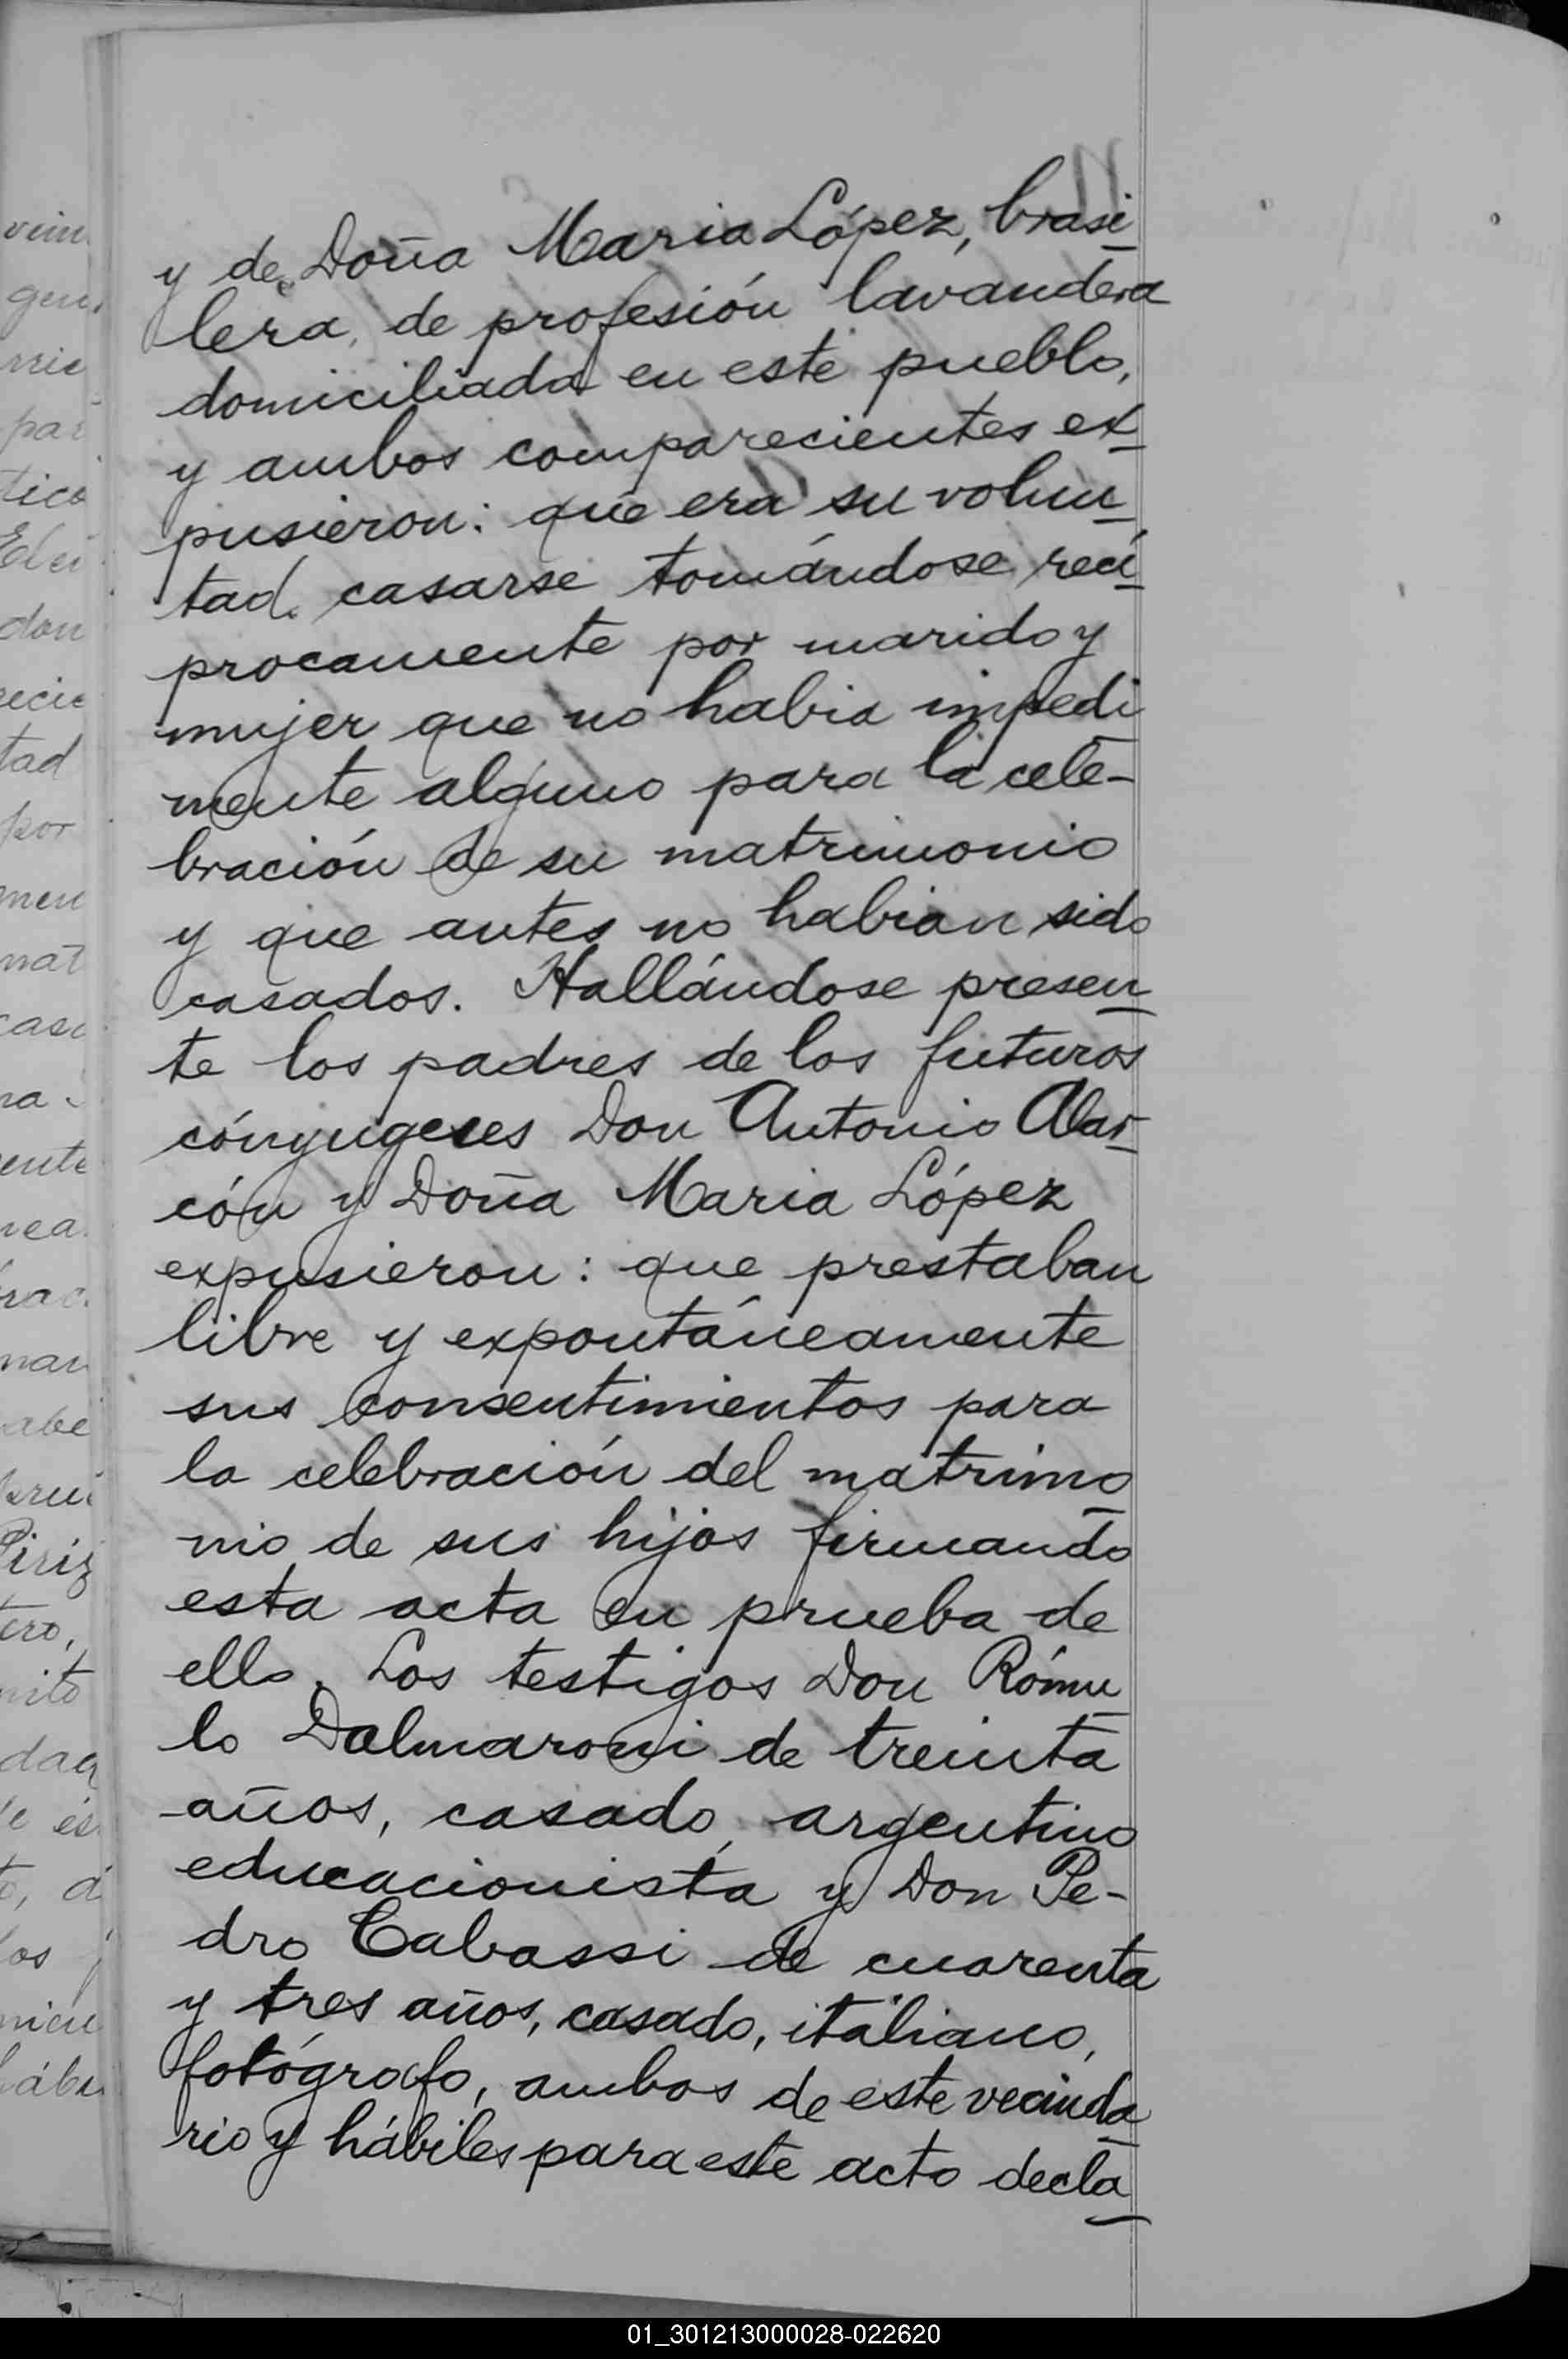 y de Doña Maria López, brasi
lera, de profesión lavandera
domiciliada en este pueblo,
y ambos comparecientes ex
pusieron: que era su volun
tad casarse tomándose recí
procamente por marido y
mujer que no habia impedi
mente alguno para la cele-
bración de su matrimonio
y que antes no habian sido
casados. Hallándose presen
te los padres de los futuros
cónyugeses Don Antonio Alar
cón y Doña Maria López
expusieron: que prestaban
libre y expontáneamente
sus consentimientos para
la celebración del matrimo
nio de sus hijos firmando
esta acta en prueba de
ello. Los testigos Don Rómu
lo Dalmaroni de treinta
años, casado, argentino
educacionista y Don Pe-
dro Cabassi de cuarenta
y tres años, casado, italiano,
fotógrafo, ambos de este vecinda
rio y hábiles para este acto decla
01_301213000028-022620